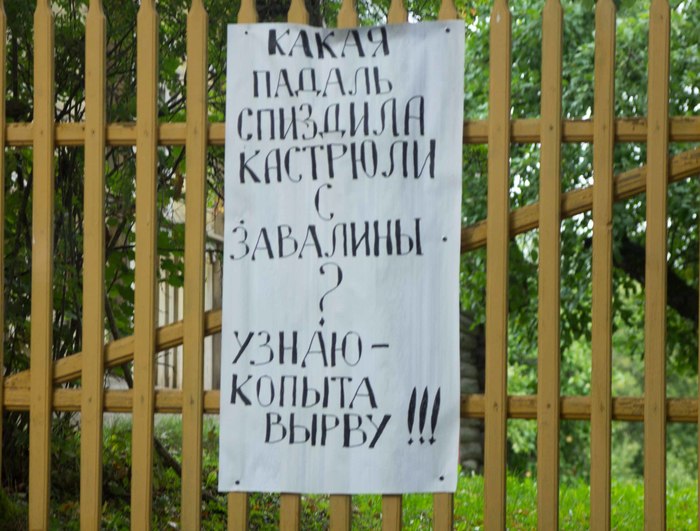 КАКАЯ
ПАДАЛЬ
СПИЗДИЛА
КАСТРЮЛИ
С
ЗАВАЛИНЫ
?
УЗНАЮ-
КОПЫТА
ВЫРВУ !!!